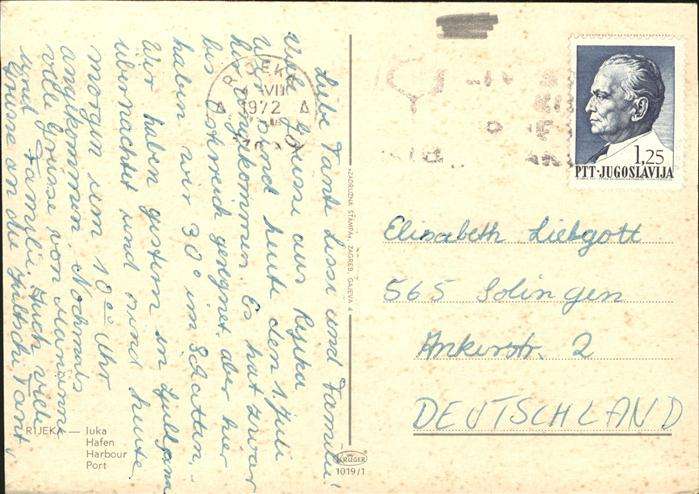 Liebe Tante Lissi und Familie!
Viele Grüsse aus Rijeka
Wir sind heute den 1. Juli
hier angekommen. Es hat zwar
bei Österreich geregnet, aber hier
haben wir 30° im Schatten.
Wir haben gestern in Ljubljana
übernachtet und sind heute
morgen um 10°° Uhr
angekommen. Nochmals
viele Grüsse von Marianne
und Familie. Auch viele
Grüsse an die Tante
RIJEKA — luka
Hafen
Harbour
Port
»ZADRUŽNA ŠTAMPA«, ZAGREB, GAJEVA 4
KRÜGER
1019/1
RIJEKA
VII
1972
1,25
PTT-JUGOSLAVIJA
Elisabeth Liebgott
565 Solingen
Ankerstr. 2
DEUTSCHLAND